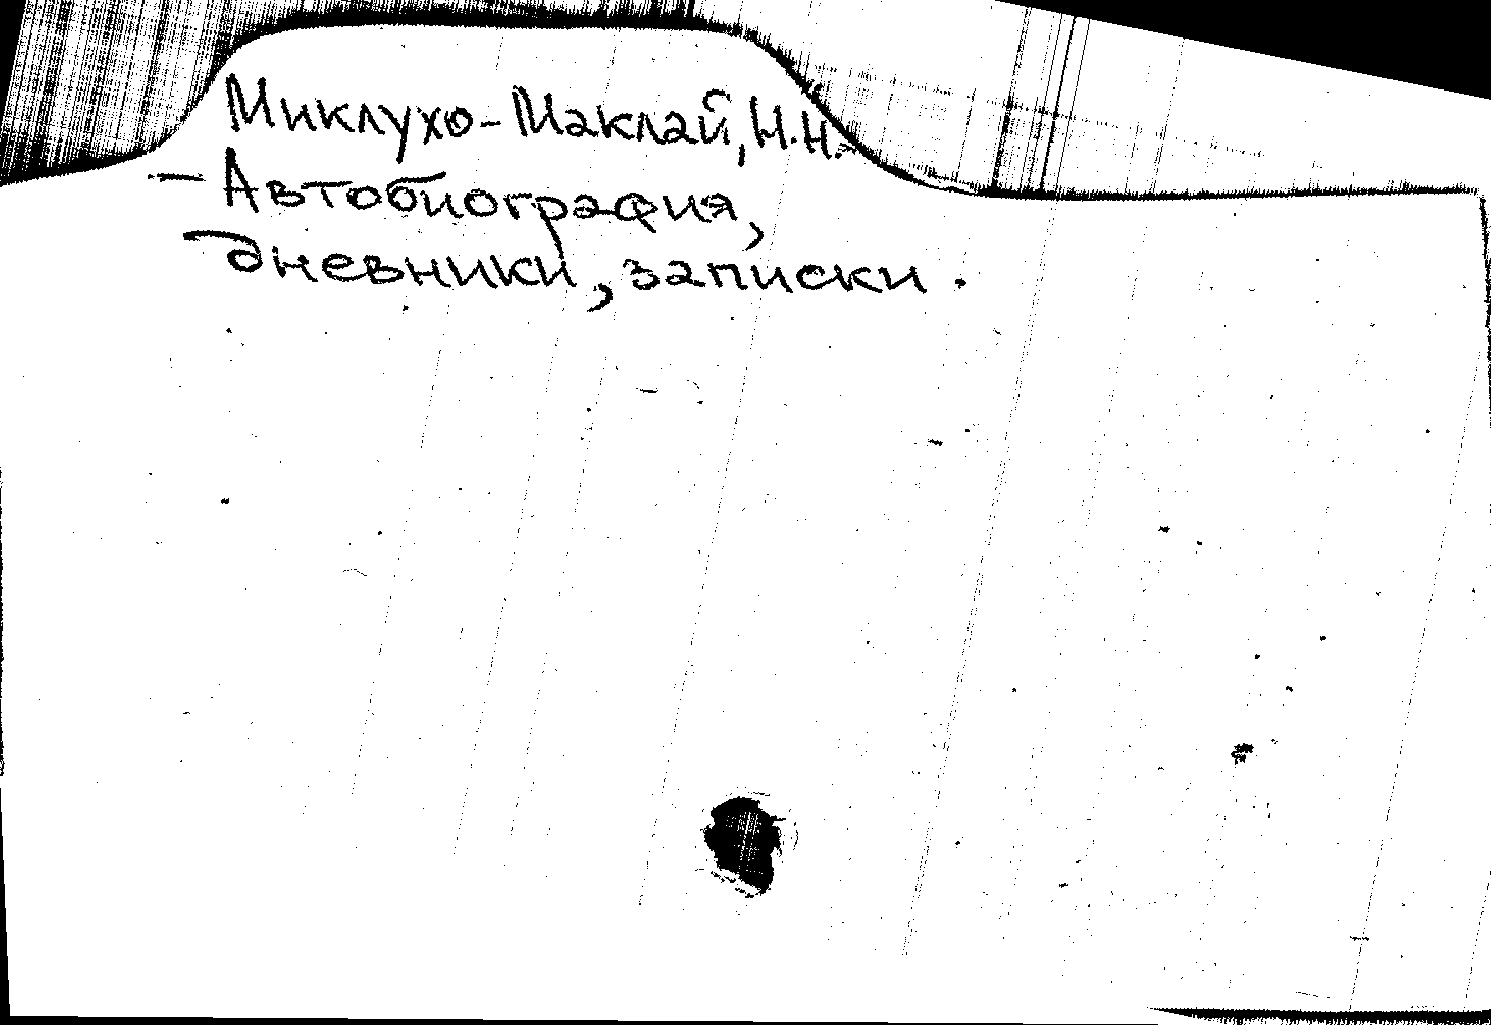 Миклухо-Маклай, Н.Н.
– Автобиография,
дневники, записки.